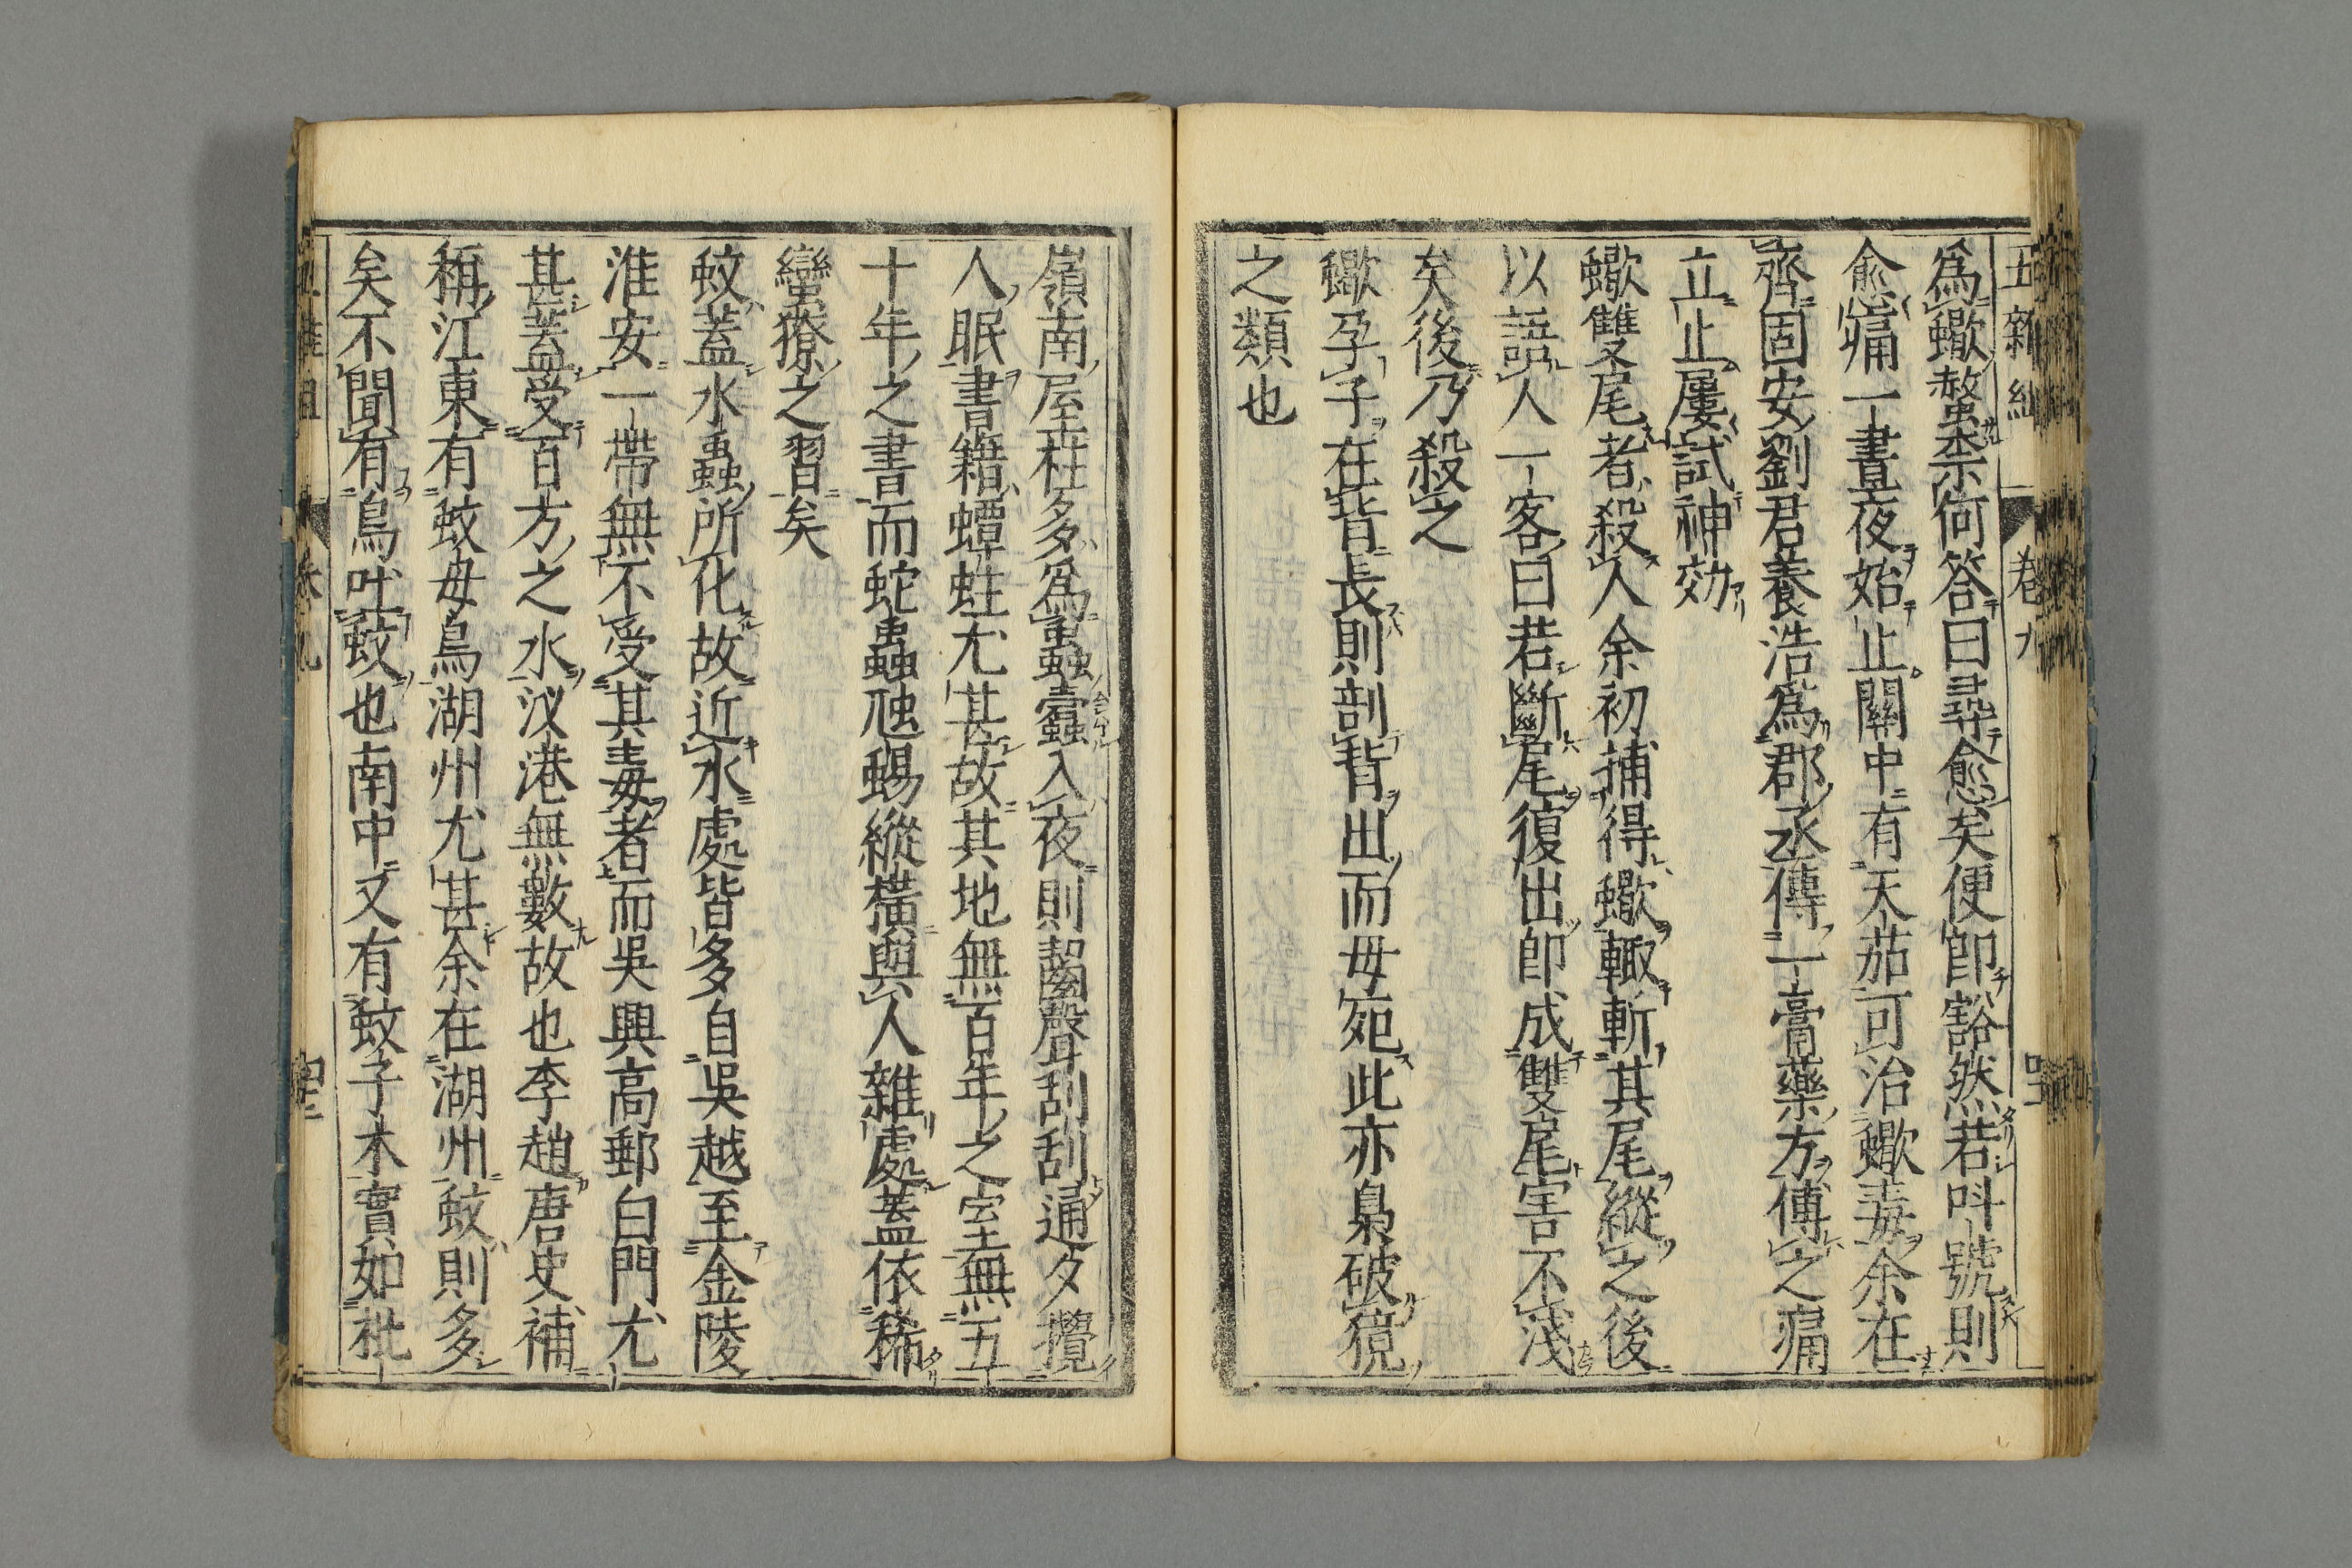 五雜組 卷九
爲蠍螫柰何答曰尋愈矣便卽豁然若呌號則
愈痛一晝夜始止關中有天茄可治蠍毒余在
齊固安劉君養浩爲郡丞傳一膏藥方傅之痛
立止屢試神効
蠍雙尾者殺人余初捕得蠍輙斬其尾縱之後
以語人一客曰若斷尾復出卽成雙尾害不淺
矣後乃殺之
蠍孕子在背長則剖背出而母死此亦梟破獍
之類也
嶺南屋柱多爲蟲蠹入夜則齧聲刮刮通夕攪
人眠書籍蟫蛀尤甚故其地無百年之室無五
十年之書而蛇蟲虺蜴縱橫與人雜處蓋依稀
蠻獠之習矣
蚊蓋水蟲所化故近水處皆多自吳越至金陵
淮安一帶無不受其毒者而吳興高郵白門尤
甚蓋受百方之水汊港無數故也李趙唐史補
稱江東有蚊母鳥湖州尤甚余在湖州蚊則多
矣不聞有鳥吐蚊也南中又有蚊子木實如枇
卷九